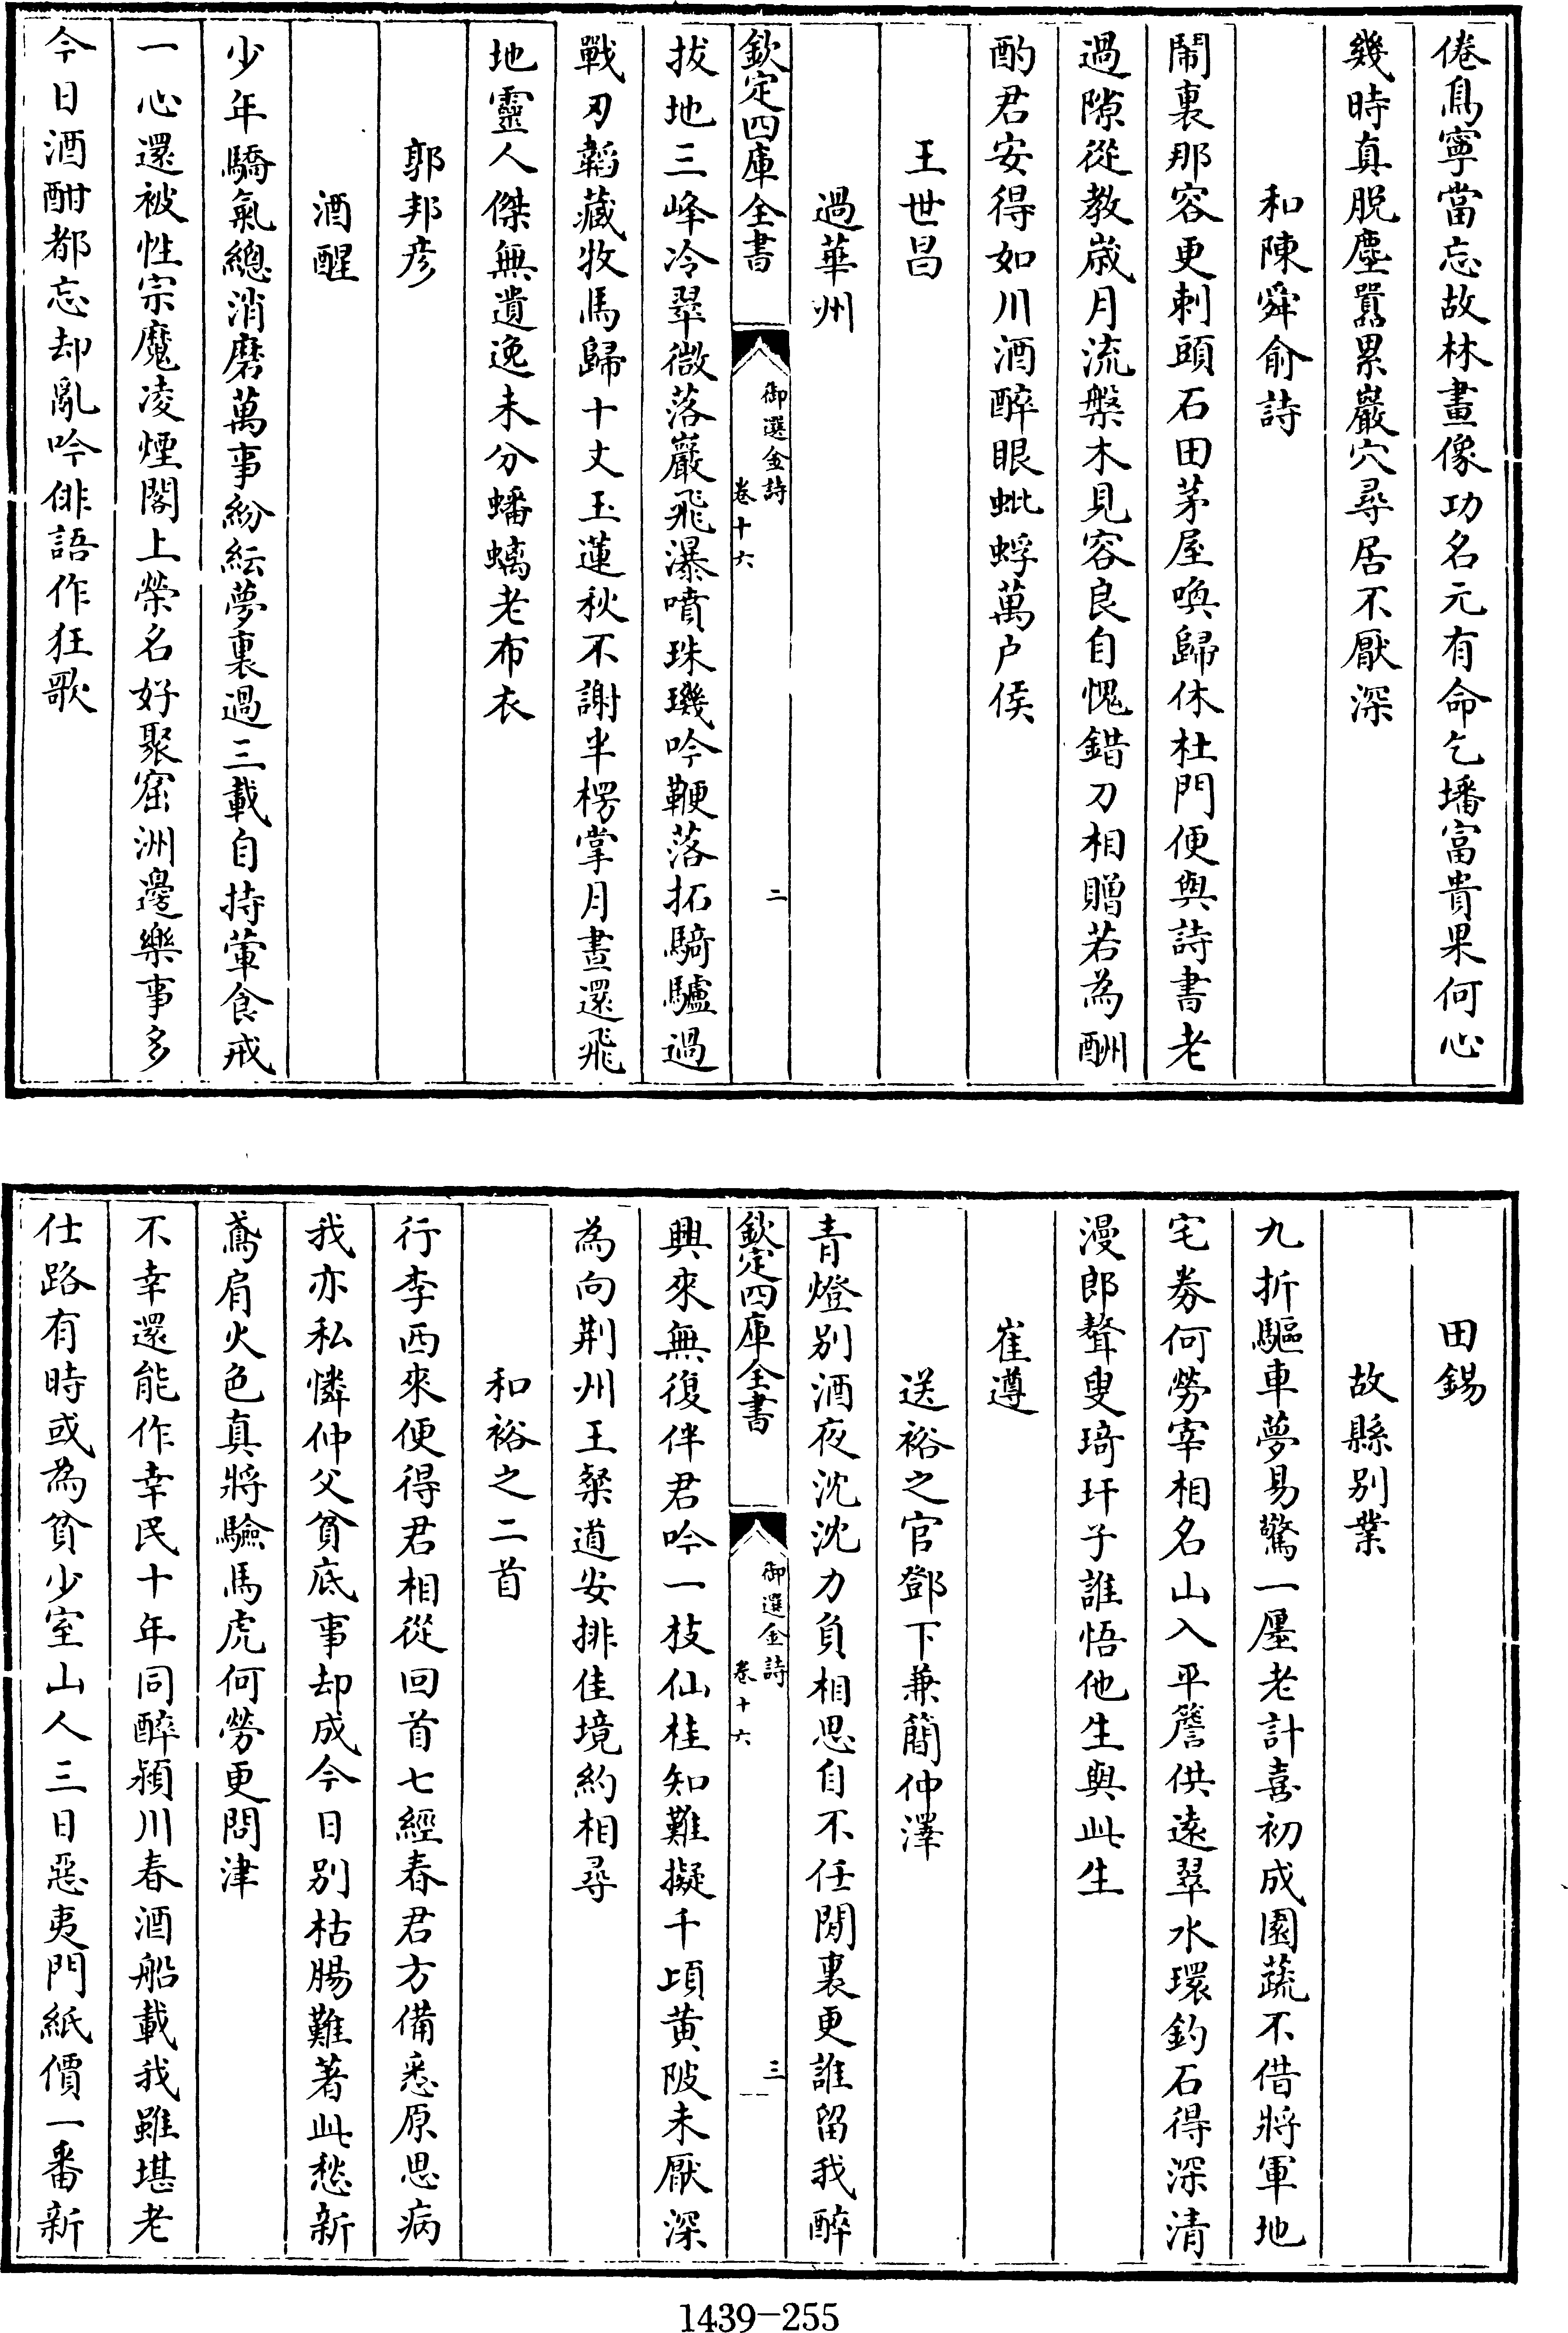 倦鳥寧當忘故林畫像功名元有命乞墦富貴果何心
幾時真脱塵囂累巖穴尋居不厭深
和陳舜俞詩
鬧裏那容更刺頭石田茅屋喚歸休杜門便與詩書老
過隙從教嵗月流槃木見容良自愧錯刀相贈若為酬
酌君安得如川酒醉眼蚍蜉萬户侯
王世昌
過華州
欽定四庫全書
御選金詩
卷十六
二
拔地三峰冷翠微落巖飛瀑噴珠璣吟鞭落拓騎驢過
戰刃韜藏牧馬歸十丈玉蓮秋不謝半楞掌月晝還飛
地靈人傑無遺逸未分蟠螭老布衣
郭邦彦
酒醒
少年驕氣總消磨萬事紛紜夢裏過三載自持葷食戒
一心還被性宗魔凌煙閣上榮名好聚窟洲邊樂事多
今日酒酣都忘却亂吟俳語作狂歌
田錫
故縣别業
九折驅車夢易驚一廛老計喜初成園蔬不借將軍地
宅券何勞宰相名山入平簷供遠翠水環釣石得深清
漫郎聱叟琦玕子誰悟他生與此生
崔遵
送裕之官鄧下兼簡仲澤
青燈别酒夜沈沈力負相思自不任閒裏更誰留我醉
欽定四庫全書
御選金詩
卷十六
三
興來無復伴君吟一枝仙桂知難擬千頃黄陂未厭深
為向荆州王粲道安排佳境約相尋
和裕之二首
行李西來便得君相從回首七經春君方備悉原思病
我亦私憐仲父貧底事却成今日别枯腸難著此愁新
鳶肩火色真將驗馬虎何勞更問津
不幸還能作幸民十年同醉潁川春酒船載我雖堪老
仕路有時或為貧少室山人三日惡夷門紙價一番新
1439-255